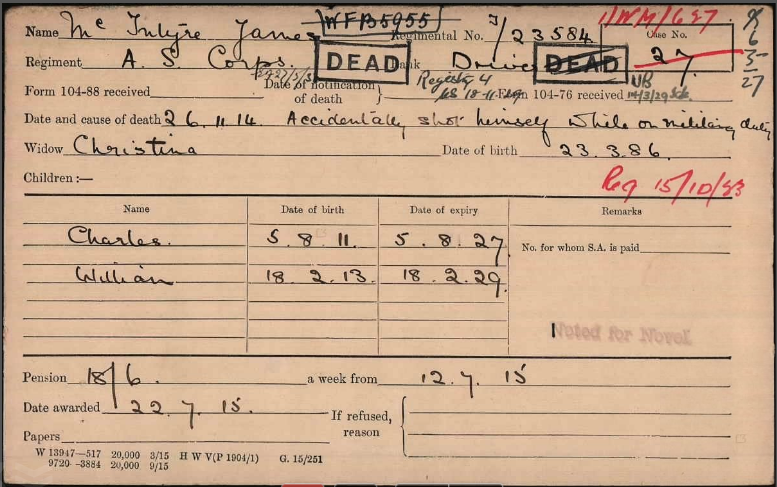 WFB5955
Name Mc Intyre James Regimental No. T/23584 1/WM/627 Case No. 27
Regiment A. S. Corps. DEAD Rank Driver DEAD
Form 104-88 received Date of notification of death Form 104-76 received
Date and cause of death 26.11.14. Accidentally shot himself while on military duty
Widow Christina Date of birth 23.3.86.
Children :— Reg 15/10/23
Name Date of birth Date of expiry Remarks
Charles. 5. 8. 11. 5. 8. 27. No. for whom S.A. is paid
William 18. 2. 13. 18. 2. 29.
Noted for Novel.
Pension 18/6. a week from 12. 7. 15
Date awarded 22. 7. 15. If refused, reason
Papers
W 13947—517 20,000 3/15 H W V(P 1904/1) G. 15/251
9720—3884 20,000 9/15